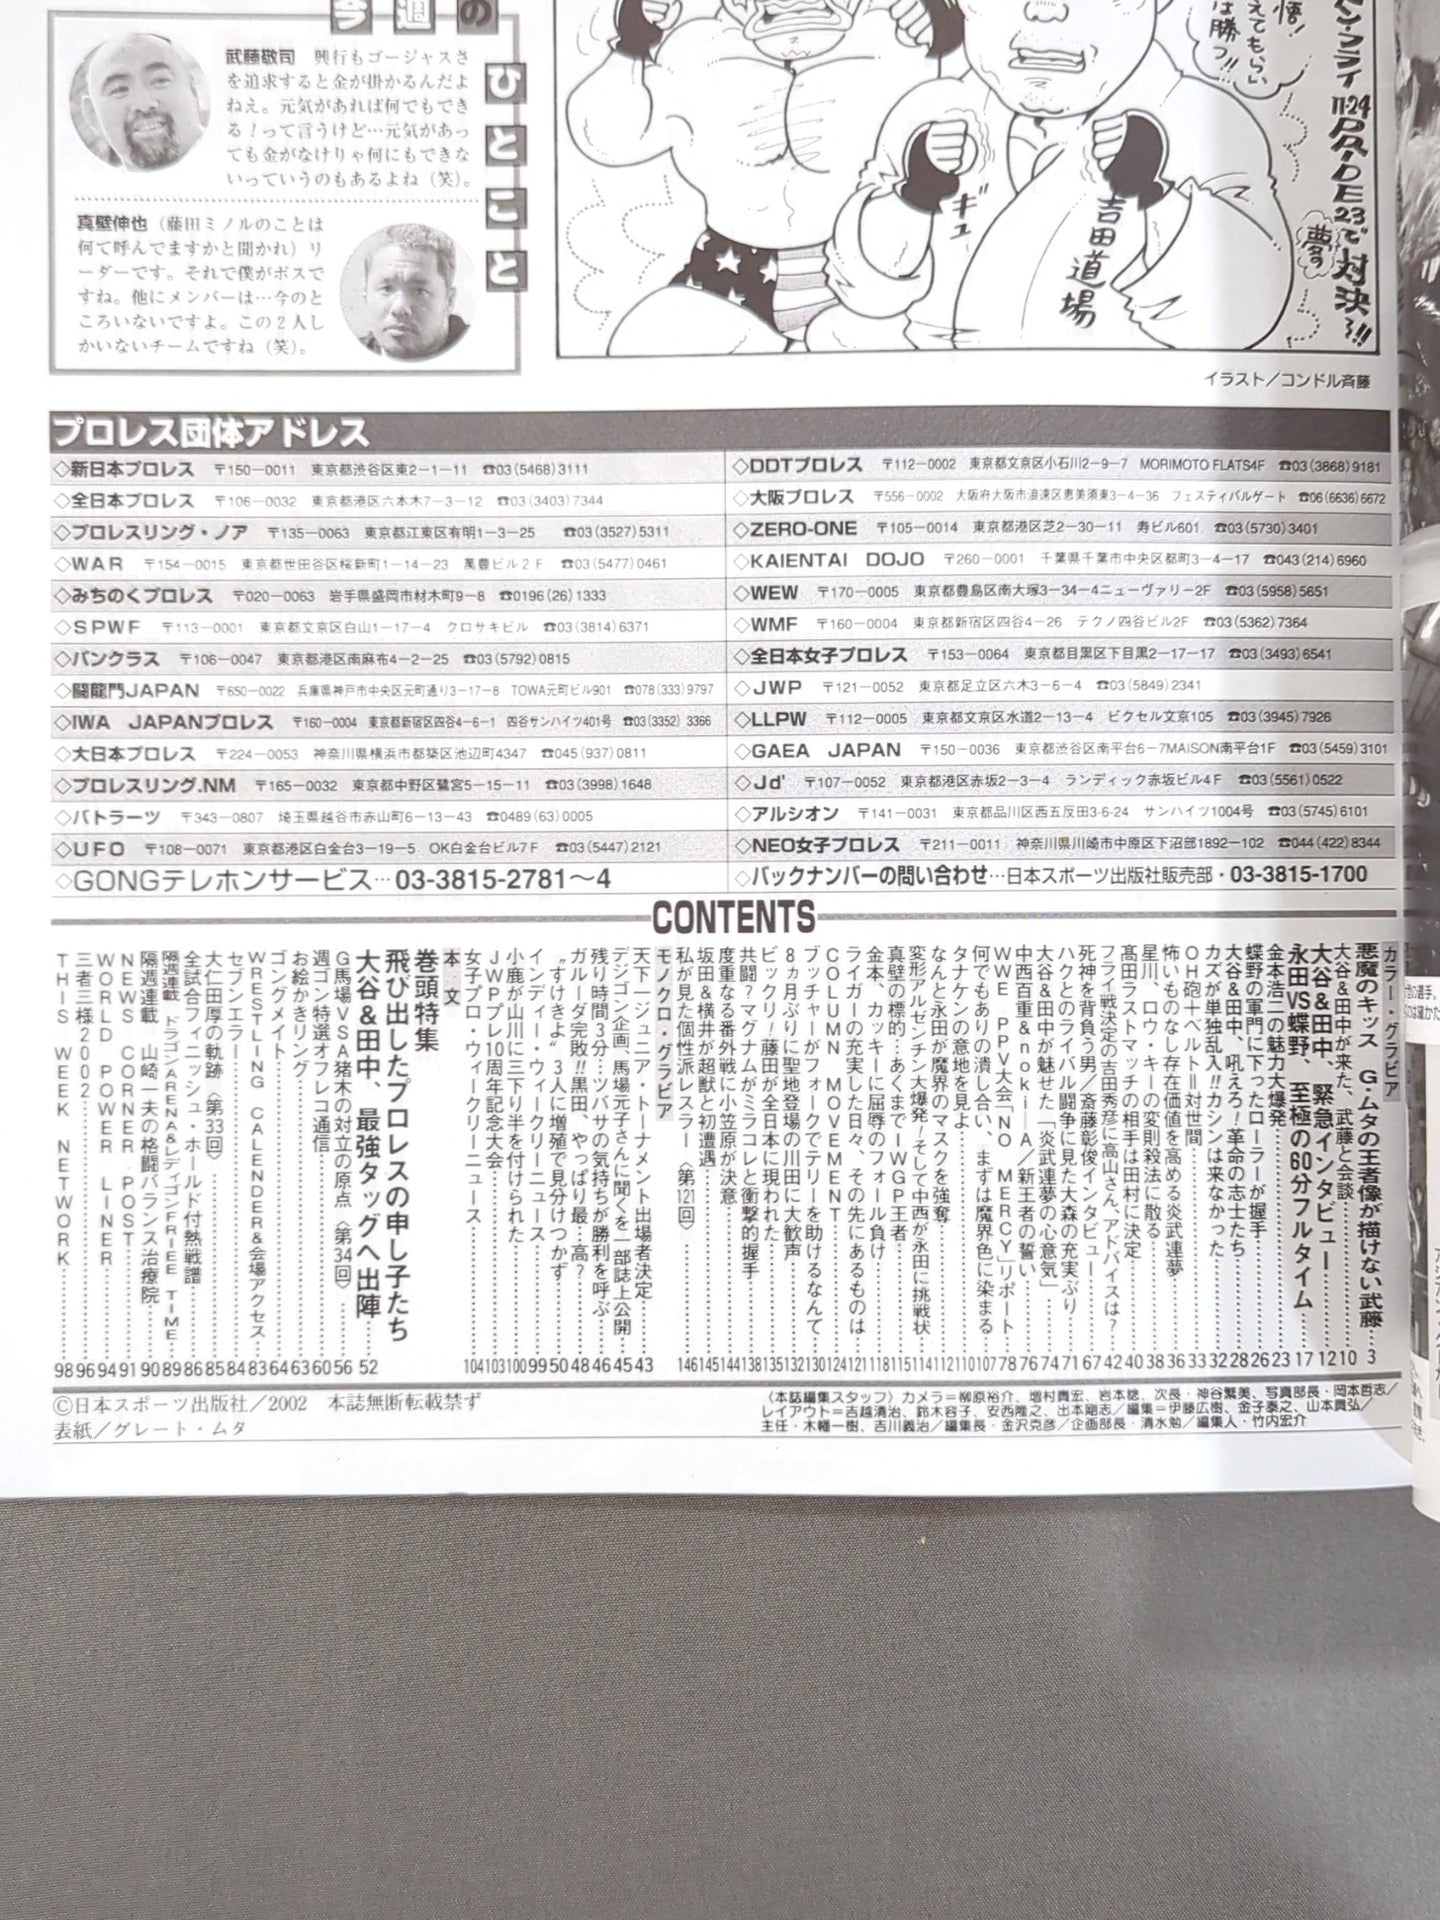 今週の
ひとこと
武藤敬司 興行もゴージャスさ
を追求すると金が掛かるんだよ
ねえ。元気があれば何でもでき
る!って言うけど…元気があっ
ても金がなけりゃ何にもできな
いっていうのもあるよね(笑)。
真壁伸也(藤田ミノルのことは
何て呼んでますかと聞かれ)リ
ーダーです。それで僕がボスで
すね。他にメンバーは…今のと
ころいないですよ。この2人し
かいないチームですね(笑)。
えてもらい
は勝つ!!
11・24
PRIDE
23で
夢の
対決
ギュ
吉田道場
イラスト/コンドル斉藤
プロレス団体アドレス
◇新日本プロレス 〒150-0011 東京都渋谷区東2-1-11 ☎03(5468)3111
◇全日本プロレス 〒106-0032 東京都港区六本木7-3-12 ☎03(3403)7344
◇プロレスリング・ノア 〒135-0063 東京都江東区有明1-3-25 ☎03(3527)5311
◇WAR 〒154-0015 東京都世田谷区桜新町1-14-23 萬豊ビル2F ☎03(5477)0461
◇みちのくプロレス 〒020-0063 岩手県盛岡市材木町9-8 ☎0196(26)1333
◇SPWF 〒113-0001 東京都文京区白山1-17-4 クロサキビル ☎03(3814)6371
◇パンクラス 〒106-0047 東京都港区南麻布4-2-25 ☎03(5792)0815
◇闘龍門JAPAN 〒650-0022 兵庫県神戸市中央区元町通り3-17-8 TOWA元町ビル901 ☎078(333)9797
◇IWA JAPANプロレス 〒160-0004 東京都新宿区四谷4-6-1 四谷サンハイツ401号 ☎03(3352)3366
◇大日本プロレス 〒224-0053 神奈川県横浜市都築区池辺町4347 ☎045(937)0811
◇プロレスリング.NM 〒165-0032 東京都中野区鷺宮5-15-11 ☎03(3998)1648
◇バトラーツ 〒343-0807 埼玉県越谷市赤山町6-13-43 ☎0489(63)0005
◇UFO 〒108-0071 東京都港区白金台3-19-5 OK白金台ビル7F ☎03(5447)2121
◇GONGテレホンサービス…03-3815-2781〜4
◇DDTプロレス 〒112-0002 東京都文京区小石川2-9-7 MORIMOTO FLATS4F ☎03(3868)9181
◇大阪プロレス 〒556-0002 大阪府大阪市浪速区恵美須東3-4-36 フェスティバルゲート ☎06(6636)6672
◇ZERO-ONE 〒105-0014 東京都港区芝2-30-11 寿ビル601 ☎03(5730)3401
◇KAIENTAI DOJO 〒260-0001 千葉県千葉市中央区都町3-4-17 ☎043(214)6960
◇WEW 〒170-0005 東京都豊島区南大塚3-34-4ニューヴァリー2F ☎03(5958)5651
◇WMF 〒160-0004 東京都新宿区四谷4-26 テクノ四谷ビル2F ☎03(5362)7364
◇全日本女子プロレス 〒153-0064 東京都目黒区下目黒2-17-17 ☎03(3493)6541
◇JWP 〒121-0052 東京都足立区六木3-6-4 ☎03(5849)2341
◇LLPW 〒112-0005 東京都文京区水道2-13-4 ビクセル文京105 ☎03(3945)7926
◇GAEA JAPAN 〒150-0036 東京都渋谷区南平台6-7MAISON南平台1F ☎03(5459)3101
◇Jd' 〒107-0052 東京都港区赤坂2-3-4 ランディック赤坂ビル4F ☎03(5561)0522
◇アルシオン 〒141-0031 東京都品川区西五反田3-6-24 サンハイツ1004号 ☎03(5745)6101
◇NEO女子プロレス 〒211-0011 神奈川県川崎市中原区下沼部1892-102 ☎044(422)8344
◇バックナンバーの問い合わせ…日本スポーツ出版社販売部・03-3815-1700
CONTENTS
カラー・グラビア
悪魔のキッス G・ムタの王者像が描けない武藤…3
大谷&田中が来た、武藤と会談…10
大谷&田中、緊急インタビュー…12
永田VS蝶野、至極の60分フルタイム…17
金本浩二の魅力大爆発…23
蝶野の軍門に下ったローラーが握手…26
大谷&田中、吼えろ!革命の志士たち…28
カズが単独乱入!!カシンは来なかった…32
OH砲+ベルト=対世間…33
怖いものなし存在価値を高める炎武連夢…36
星川、ロウ・キーの変則殺法に散る…38
髙田ラストマッチの相手は田村に決定…40
フライ戦決定の吉田秀彦に高山さん、アドバイスは?…42
死神を背負う男/斎藤彰俊インタビュー…67
ハクとのライバル闘争に見た大森の充実ぶり…71
大谷&田中が魅せた「炎武連夢の心意気」…74
中西百重&noki-A/新王者の誓い…76
WWE PPV大会「NO MERCY」リポート…78
何でもありの潰し合い、まずは魔界色に染まる…107
タナケンの意地を見よ…110
なんと永田が魔界のマスクを強奪…112
変形アルゼンチン大爆発!そして中西が永田に挑戦状…114
真壁の標的…あくまでIWGP王者…115
金本、カッキーに屈辱のフォール負け…118
ライガーの充実した日々、その先にあるものは…121
COLUMN MOVEMENT…124
ブッチャーがフォークでテリーを助けるなんて…130
8ヵ月ぶりに聖地登場の川田に大歓声…132
ビックリ!藤田が全日本に現われた…135
共闘?マグナムがミラコレと衝撃的握手…138
度重なる番外戦に小笠原が決意…144
坂田&横井が超獣と初遭遇…145
私が見た個性派レスラー〈第121回〉…146
モノクロ・グラビア
天下一ジュニア・トーナメント出場者決定…43
デジゴン企画、馬場元子さんに聞くを一部誌上公開…45
残り時間3分…ツバサの気持ちが勝利を呼ぶ…46
ガルーダ完敗!!黒田、やっぱり最…高?…48
“すけきよ”3人に増殖で見分けつかず…50
インディー・ウィークリーニュース…99
小鹿が山川に三下り半を付けられた…100
JWPプレ10周年記念大会…103
女子プロ・ウィークリーニュース…104
本文
巻頭特集
飛び出したプロレスの申し子たち
大谷&田中、最強タッグへ出陣…52
G馬場VSA猪木の対立の原点〈第34回〉…56
週ゴン特選オフレコ通信…60
お絵かきリング…63
ゴングメイト…64
WRESTLING CALENDER&会場アクセス…83
セブンエラー…84
大仁田厚の軌跡〈第33回〉…85
全試合フィニッシュ・ホールド付熱戦譜…86
隔週連載 ドラゴンARENA&レディゴンFRIEE TIME…89
隔週連載 山崎一夫の格闘バランス治療院…90
NEWS CORNER POST…91
WORLD POWER LINER…94
三者三様2002…96
THIS WEEK NETWORK…98
©日本スポーツ出版社/2002 本誌無断転載禁ず
表紙/グレート・ムタ
〈本誌編集スタッフ〉カメラ=柳原裕介、増村貴宏、岩本稔、次長・神谷繁美、写真部長・岡本哲志/
レイアウト=吉越清治、鈴木容子、安西隆之、出本剛志/編集=伊藤広樹、金子泰之、山本貫弘/
主任・木幡一樹、吉川義治/編集長・金沢克彦/企画部長・清水勉/編集人・竹内宏介